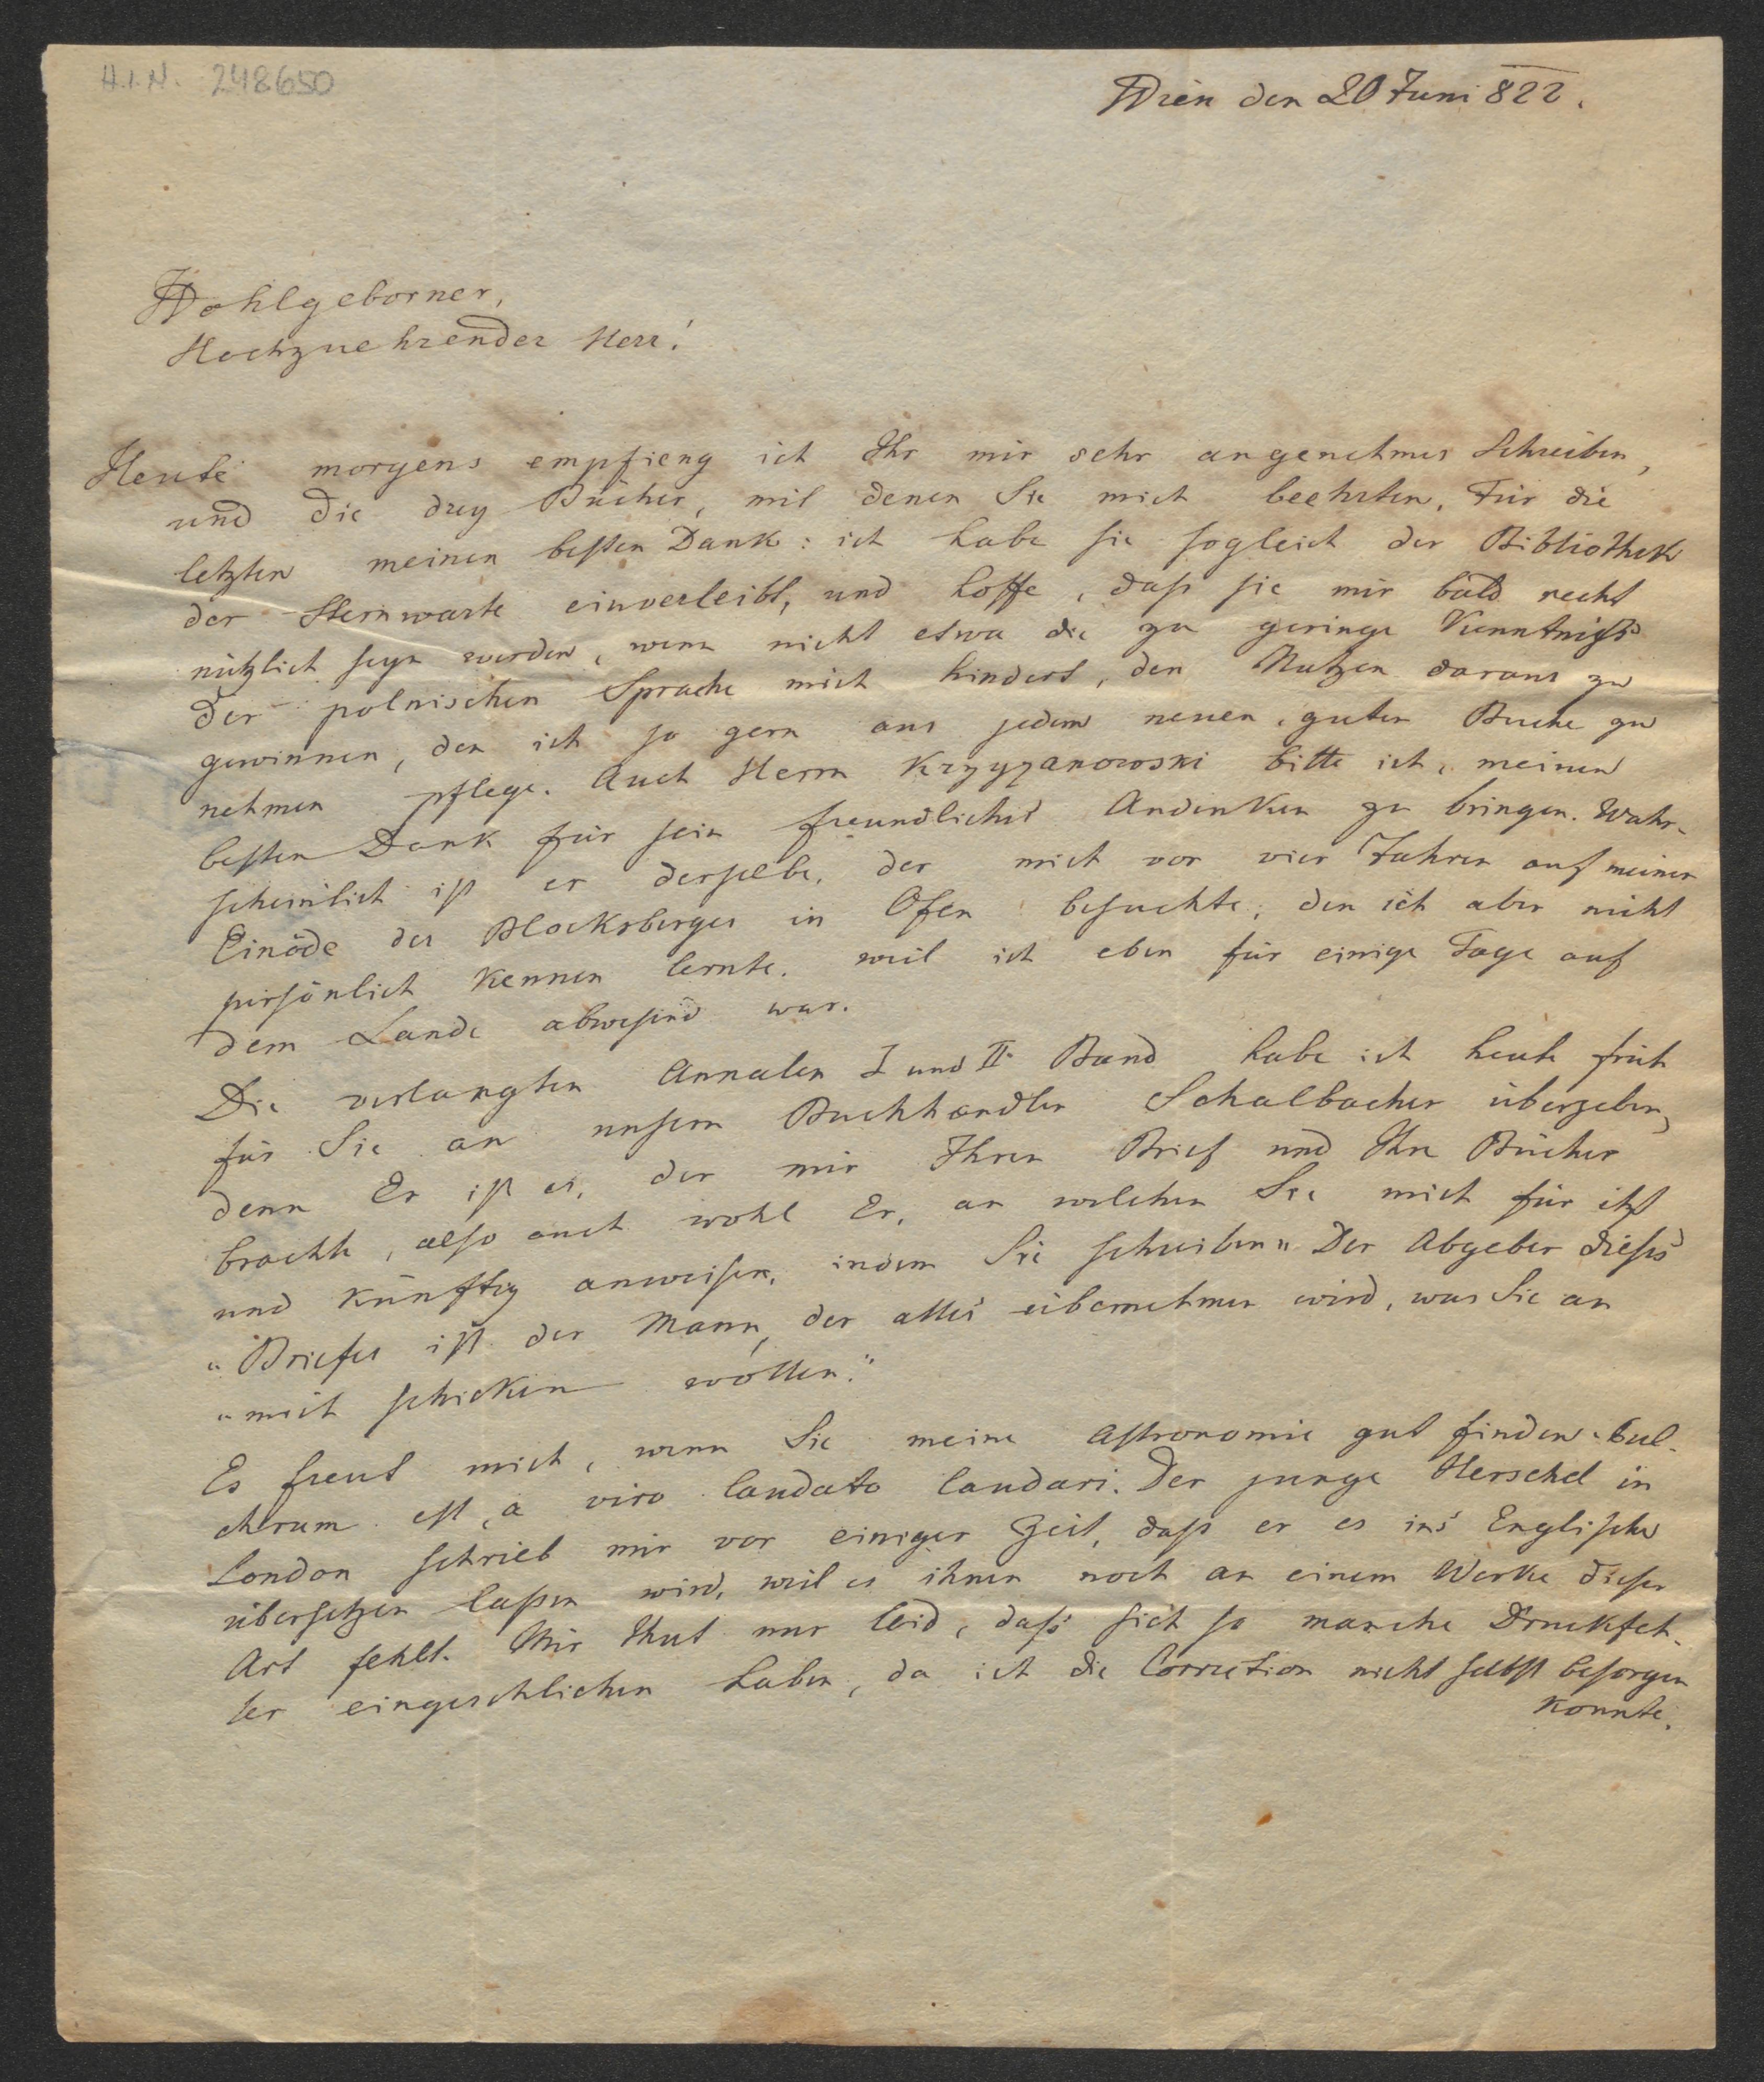 H.I.N. 248650
Wien den 20 Juni 822.
Wohlgeborner,
Hochzuehrender Herr!
Heute morgens empfieng ich Ihr mir sehr angenehmes Schreiben,
und die drey Bücher, mit denen Sie mich beehrten. Für die
letzten meinen besten Dank: ich habe sie sogleich der Bibliothek
der Sternwarte einverleibt, und hoffe, daß sie mir bald recht
nützlich seyn werden, wenn nicht etwa die zu geringe Kenntniß
der polnischen Sprache mich hindert, den Nutzen daraus zu
gewinnen, den ich so gern aus jedem neuen, guten Buche zu
nehmen pflege. Auch Herrn Krzyzanowski bitte ich, meinen
besten Dank für sein freundliches Andenken zu bringen. Wahr-
scheinlich ist er derselbe, der mich vor vier Jahren auf meiner
Einöde des Blocksberges in Ofen besuchte, den ich aber nicht
persönlich kennen lernte, weil ich eben für einige Tage auf
dem Lande abwesend war.
Die verlangten Annalen I und II Band habe ich heute früh
für Sie an unsern Buchhändler Schalbacher übergeben,
denn Er ist es, der mir Ihren Brief und Ihre Bücher
brachte, also auch wohl Er, an welchen Sie mich für itzt
und künftig anweisen, indem Sie schreiben „Der Abgeber dieses
„Briefes ist der Mann, der alles übernehmen wird, was Sie an
„mich schicken wollen."
Es freut mich, wenn Sie meine Astronomie gut finden. Pul-
chrum est, a viro laudato laudari. Der junge Herschel in
London schrieb mir vor einiger Zeit, daß er es ins Englische
übersetzen laßen wird, weil es ihnen noch an einem Werke dieser
Art fehlt. Mir thut nur leid, daß sich so manche Druckfeh-
ler eingeschlichen haben, da ich die Correction nicht selbst besorgen
konnte.